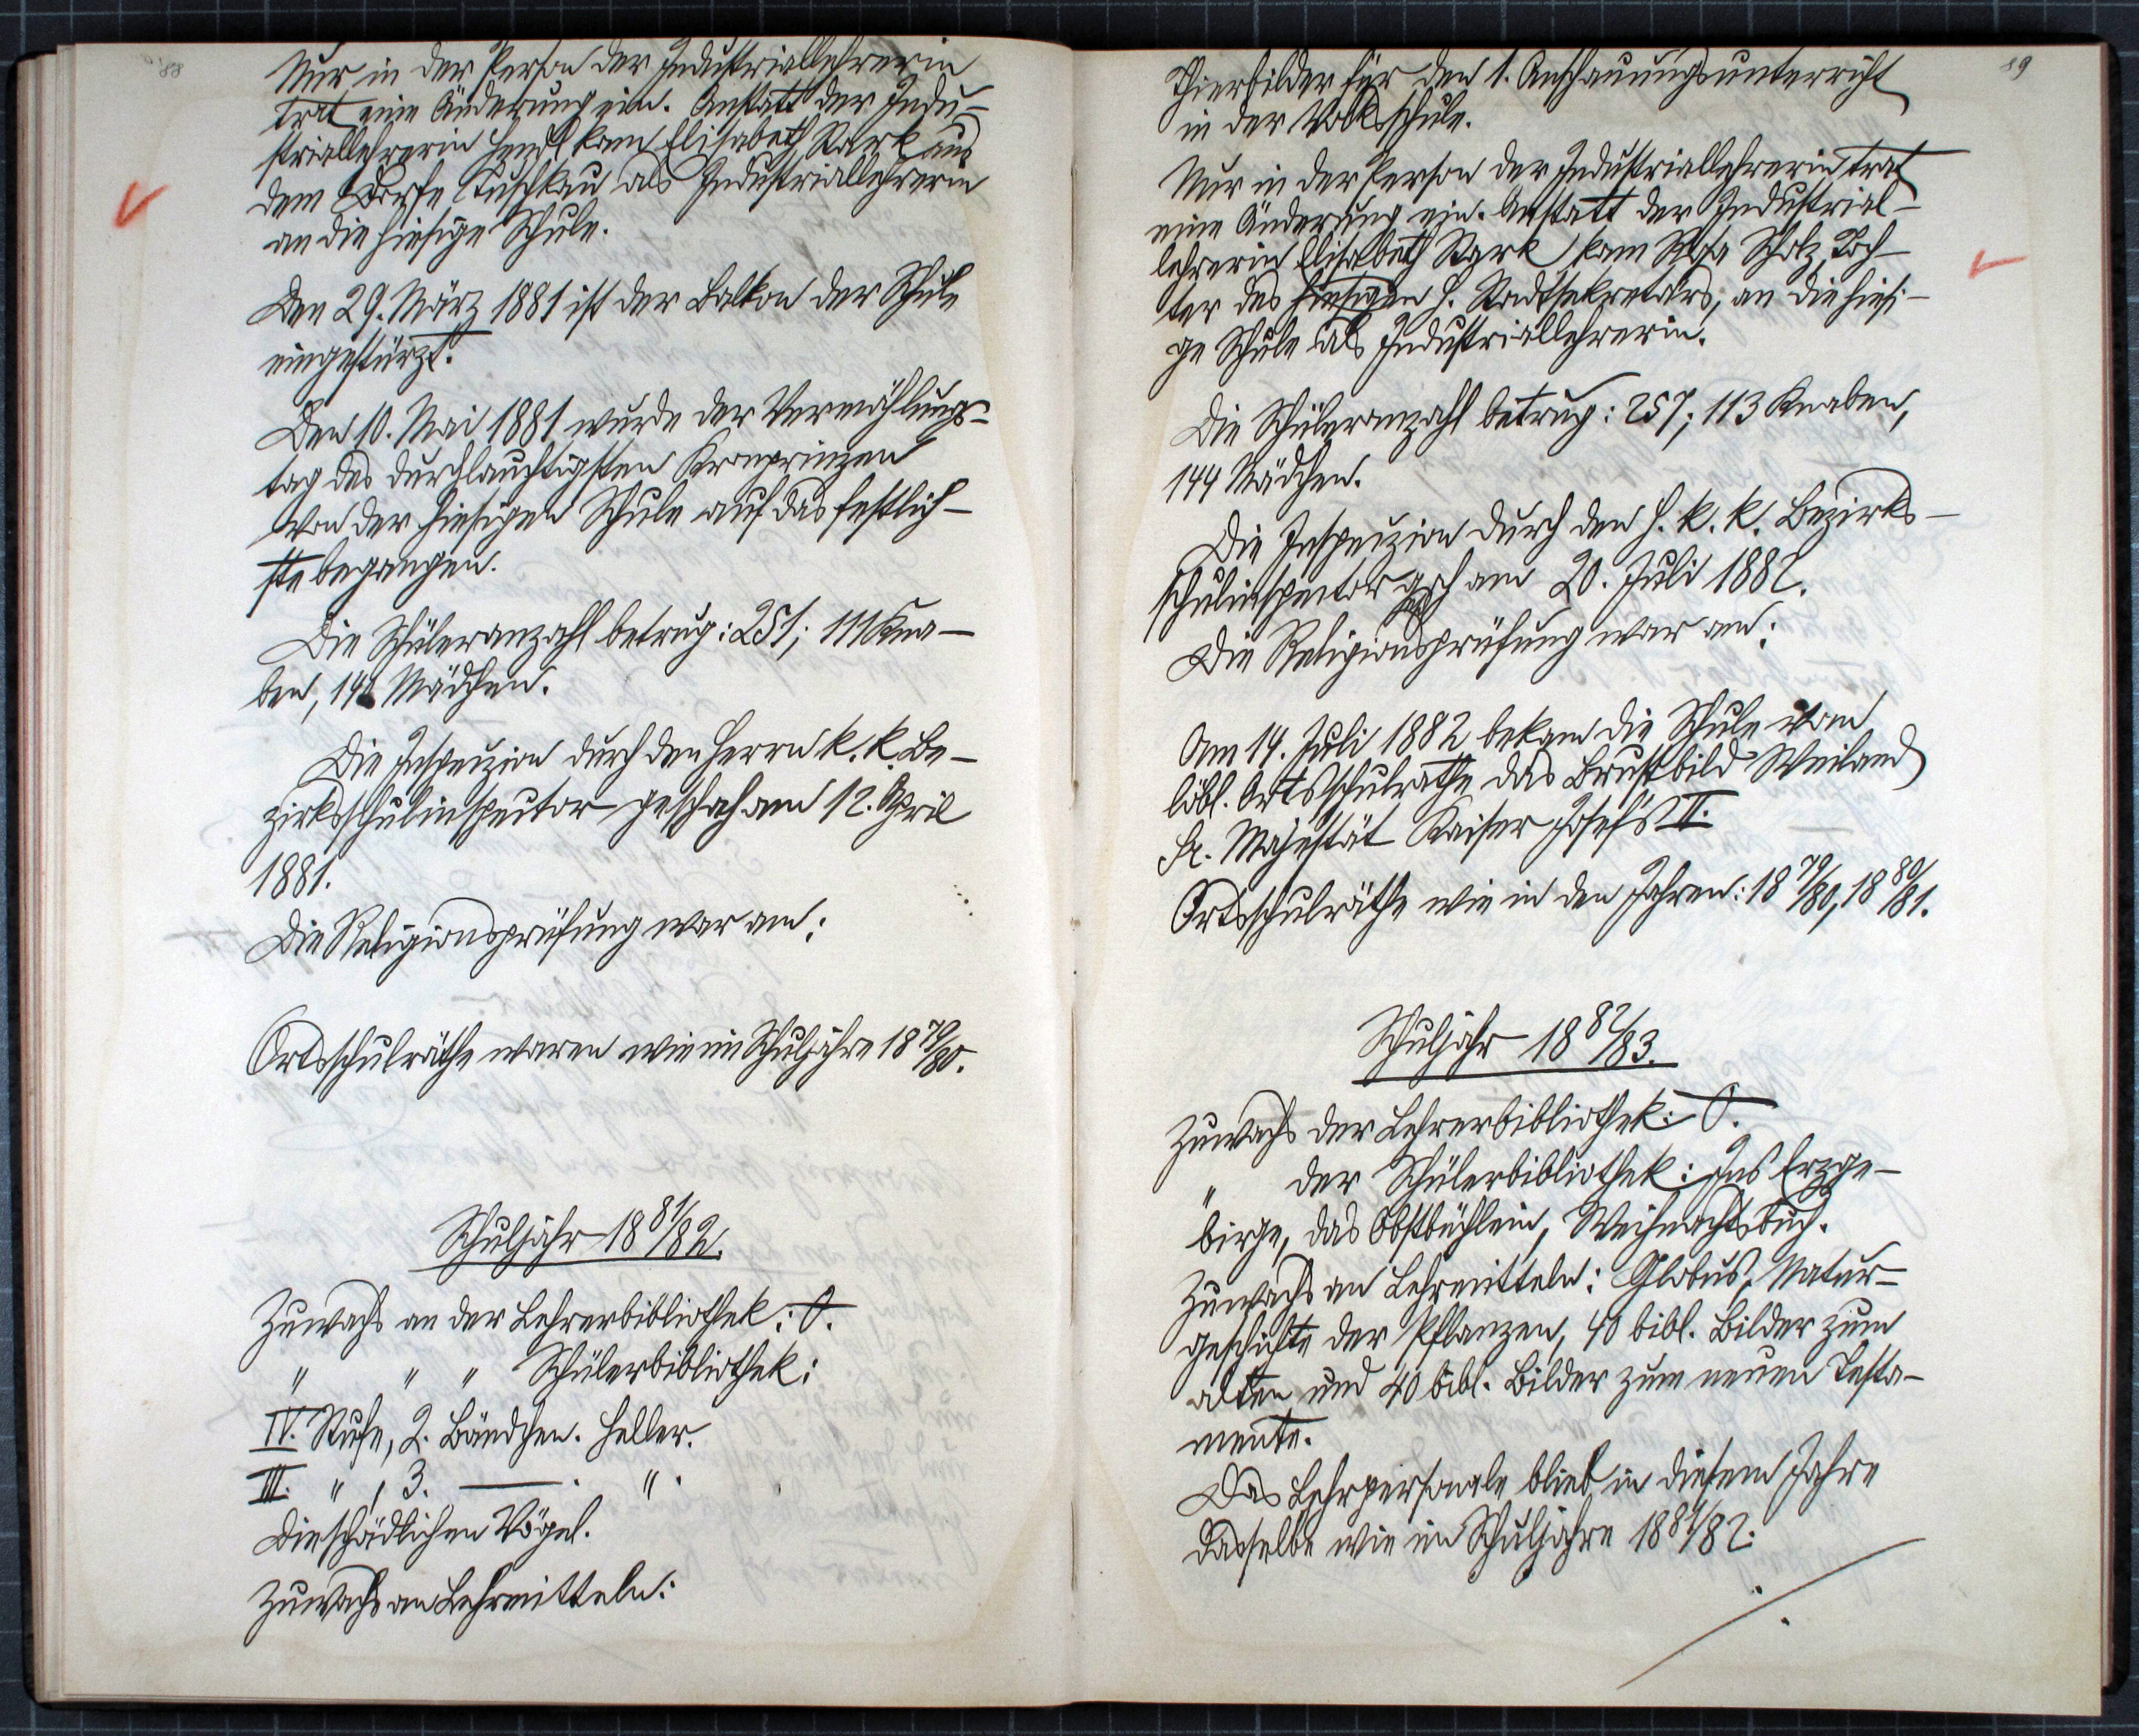 88
Nur in der Person der Industriallehrerin
trat eine Änderung ein. Anstatt der Indu-
striallehrerin kam Elisabeth Stark aus
dem Dorfe Kuschkau als Industriallehrerin
an die hiesige Schule.
Den 29. März 1881 ist der Balkon der Schule
eingestürzt.
Den 10. Mai 1881 wurde der Vermählungs-
tag des durchlauchtigsten Kronprinzen
von der hiesigen Schule auf das festlich-
ste begangen.
Die Schüleranzahl betrug: 251; 111 Kna-
ben, 140 Mädchen.
Die Inspeczion durch den Herrn k. k. Be-
zirksschulinspector geschah am 12. April
1881.
Die Religionsprüfung war am:
Ortsschulräthe waren wie im Schuljahre 1879/80.
Schuljahr 1881/82.
Zuwachs an der Lehrerbibliothek: 0.
" " " Schülerbibliothek:
IV. Stufe, 2. Bändchen. Heller.
III. " , 3. —. ".
Die schädlichen Vögel.
Zuwachs an Lehrmitteln:
89
Thierbilder für den 1. Anschauungsunterricht
in der Volksschule.
Nur in der Person der Industriallehrerin trat
eine Änderung ein. Anstatt der Industrial-
lehrerin Elisabeth Stark kam Rosa Scholz, Toch-
ter des hiesigen H. Stadtsekretärs, an die hiesi-
ge Schule als Industriallehrerin.
Die Schüleranzahl betrug: 257; 113 Knaben,
144 Mädchen.
Die Inspeczion durch den H. k. k. Bezirks-
schulinspector gsch am 20. Juli 1882.
Die Religionsprüfung war am:
Am 14. Juli 1882 bekam die Schule vom
löbl. Ortsschulrathe das Brustbild Weiland
Sr. Majestät Kaiser Josef's II.
Ortsschulräthe wie in den Jahren: 1879/80, 1880/81.
Schuljahr 1882/83.
Zuwachs der Lehrerbibliothek: 0.
" der Schülerbibliothek: Das Erzge-
birge, das Obstbüchlein, Weihnachtsbuch.
Zuwachs an Lehrmitteln: Globus, Natur-
geschichte der Pflanzen, 40 bibl. Bilder zum
alten und 40 bibl. Bilder zum neuen Testa-
mente.
Das Lehrpersonale blieb in diesem Jahre
dasselbe wie im Schuljahre 1881/82.